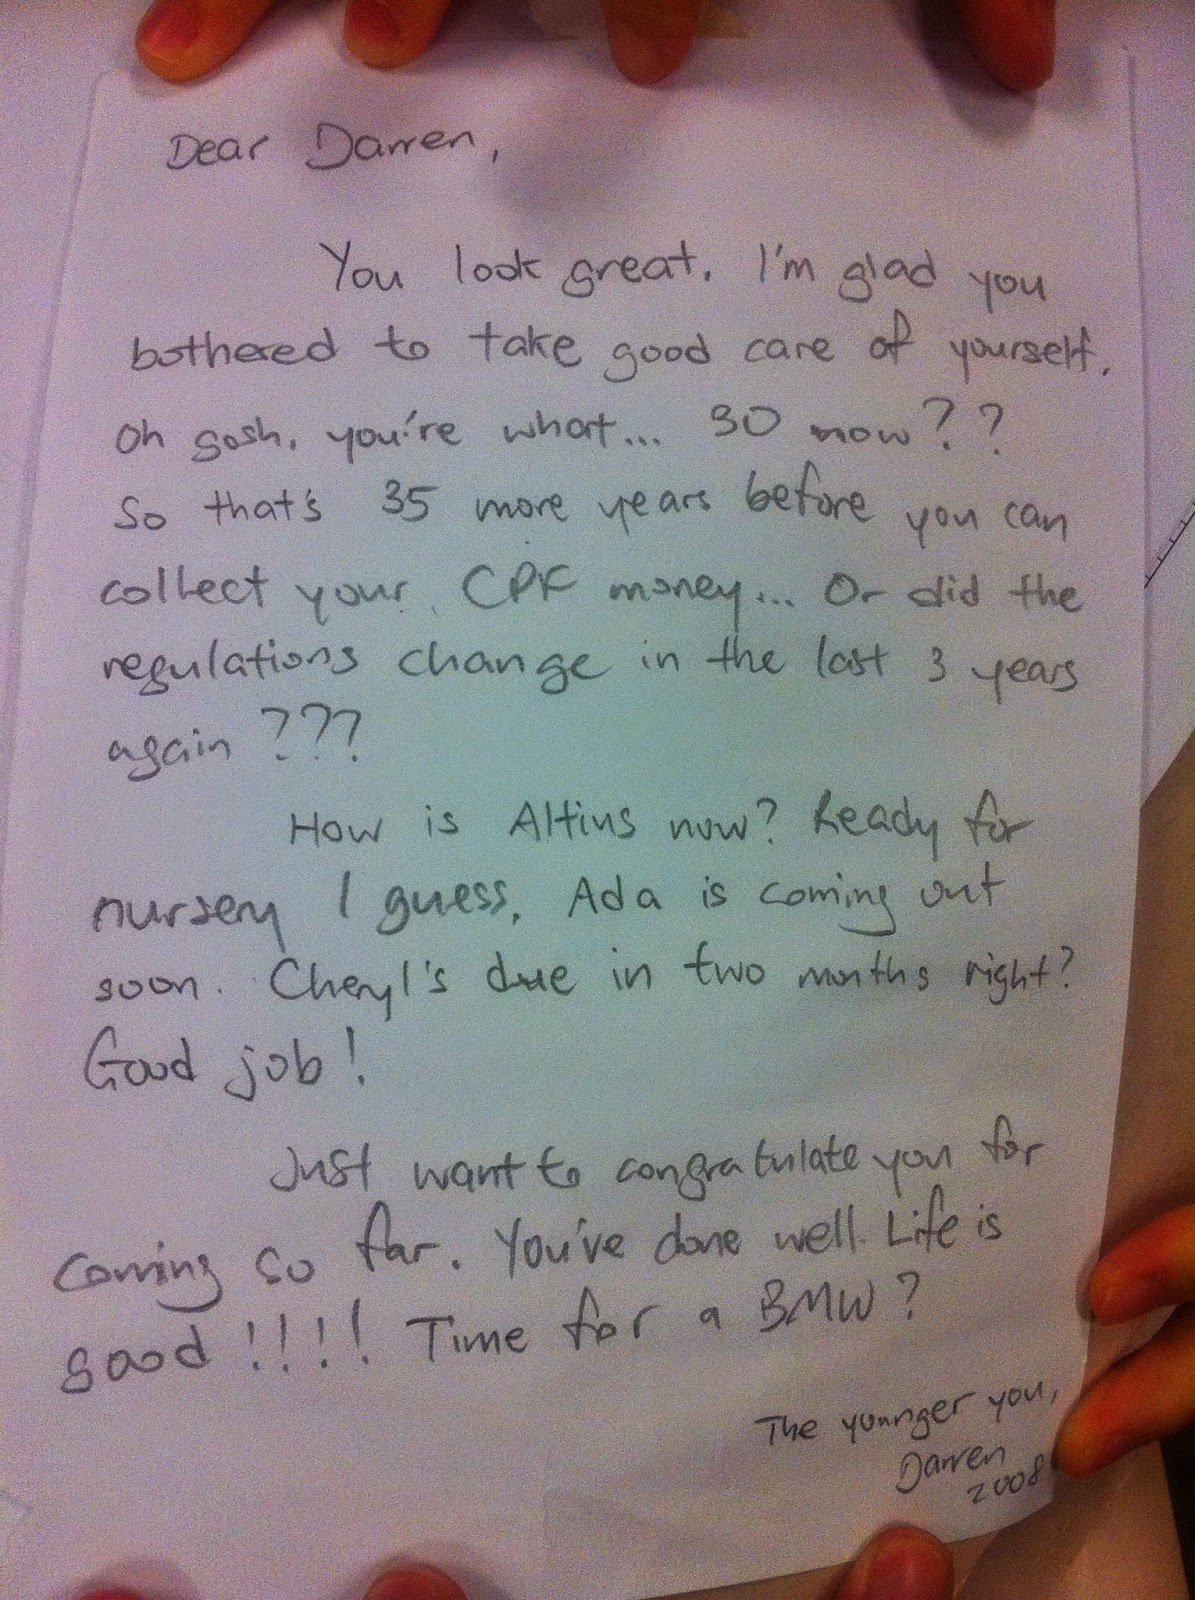 Dear Darren,
You look great. I'm glad you
bothered to take good care of yourself.
Oh gosh, you're what... 30 now??
So that's 35 more years before you can
collect your CPF money... Or did the
regulations change in the last 3 years
again ???
How is Altius now? Ready for
nursery I guess. Ada is coming out
soon. Cheryl's due in two months right?
Good job!
Just want to congratulate you for
coming so far. You've done well. Life is
good !!!! Time for a BMW?
The younger you,
Darren
2008